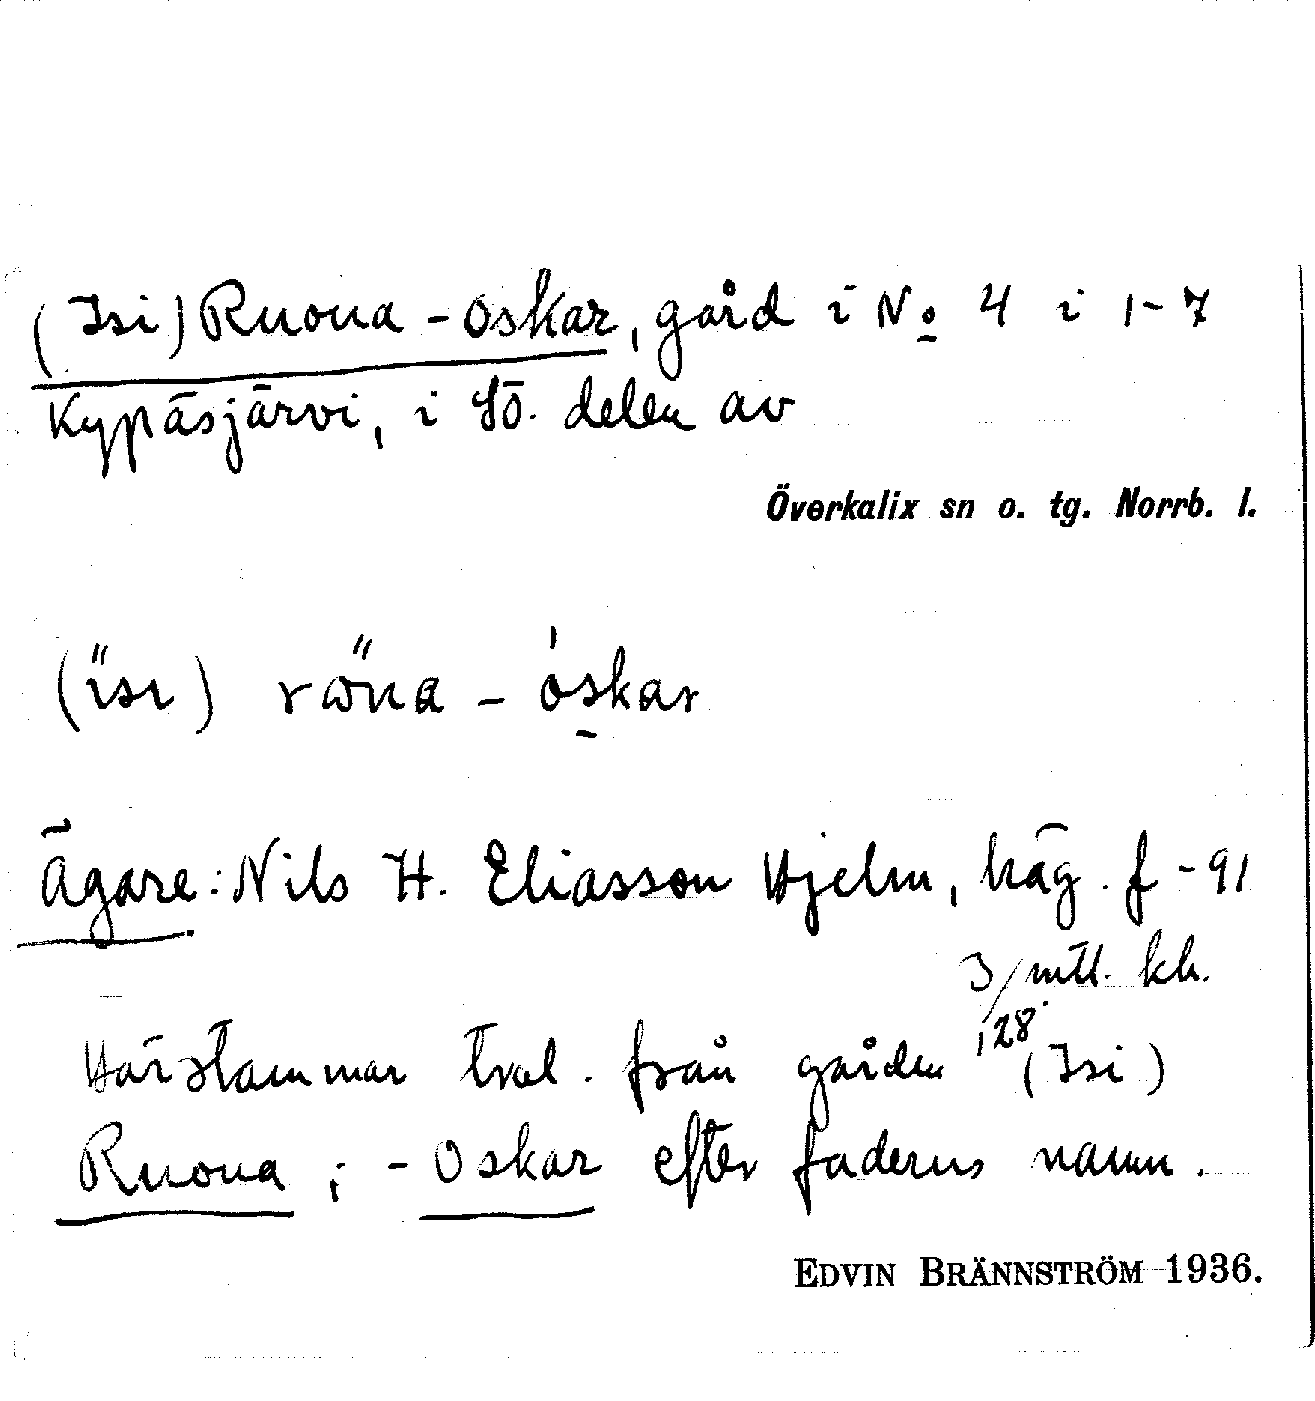 (Isi) Ruona-Oskar, gård i No 4 i 1-7
Kypäsjärvi, i Sö. delen av
Överkalix sn o. tg. Norrb. l.
(ı̋sı) rω̋na - óskar
Ägare: Nils H. Eliasson Hjelm, häg. f -91
3/128 mtl. kh.
Härstammar tral. från gården (Isi)
Ruona; -Oskar efter faderns namn.
EDVIN BRÄNNSTRÖM 1936.